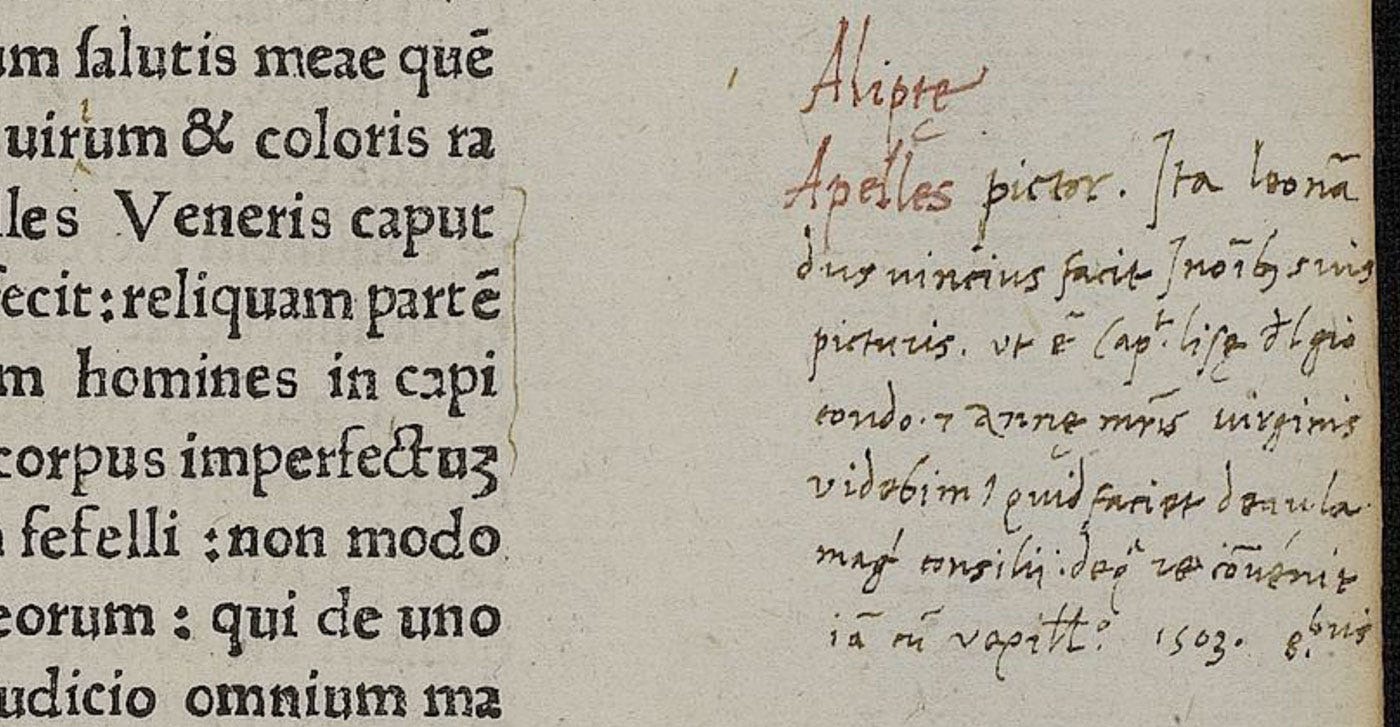 um ſalutis meae quē
uirum & coloris ra
lles Veneris caput
fecit: reliquam partē
m homines in capi
corpus imperfectuꝫ
ſefelli : non modo
eorum : qui de uno
udicio omnium ma
Alipte
Apelles pictor. Ita leonā
dus uincius facit in oībꝫ suis
picturis. ut ē capt lisę dl gio
condo. ⁊ annę mr̄is uirginis
videbimꝰ quid faciet de aula
magͥ consilii: de qͣ re cōuenit
iā cū vexillͦ. 1503. 8bris